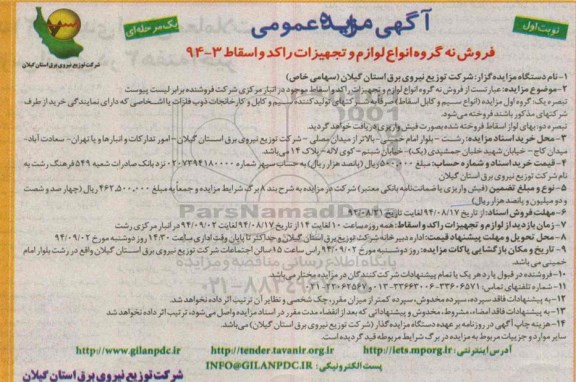 نوبت اول
آگهی مزایده عمومی
یک مرحله‌ای
فروش نه گروه انواع لوازم و تجهیزات راکد و اسقاط ۳-۹۴
شرکت توزیع نیروی برق استان گیلان
۱-نام دستگاه مزایده گزار: شرکت توزیع نیروی برق استان گیلان (سهامی خاص)
۲-موضوع مزایده: عبارتست از فروش نه گروه انواع لوازم و تجهیزات راکد و اسقاط موجود در انبار مرکزی شرکت فروشنده برابر لیست پیوست
تبصره یک: گروه اول مزایده (انواع سیم و کابل اسقاط) صرفا به شرکتهای تولیدکننده سیم و کابل و کارخانجات ذوب فلزات یا اشخاصی که دارای نمایندگی خرید از طرف
شرکتهای مذکور باشند فروخته می‌شود.
تبصره دو: بهای لوازم اسقاط فروخته شده بصورت فیش واریزی دریافت خواهد گردید.
۳-محل خرید اسناد مزایده: رشت - بلوار امام خمینی - بالاتر از میدان مصلی - شرکت توزیع نیروی برق استان گیلان - امور تدارکات و انبارها و یا تهران - سعادت آباد-
میدان کاج - خیابان شهید خلبان جمشیدی (یک) - خیابان شبنم - کوی لاله - پلاک ۱۴ می‌باشد.
۴-قیمت خرید اسناد و شماره حساب: مبلغ ۵۰۰,۰۰۰ ریال (پانصد هزار ریال) به حساب سپهر شماره ۰۲۰۷۳۹۴۱۸۰۰۰۰ نزد بانک صادرات شعبه ۵۴۹ فرهنگ رشت به
نام شرکت توزیع نیروی برق استان گیلان
۵-نوع و مبلغ تضمین: (فیش واریزی یا ضمانت‌نامه بانکی معتبر) شرکت در مزایده به شرح بند ۸ برگ شرایط مزایده و جمعاً به مبلغ ۴۶۲,۵۰۰,۰۰۰ ریال (چهارصد و شصت
و دو میلیون و پانصد هزار ریال)
۶-مهلت فروش اسناد: از تاریخ ۹۴/۰۸/۱۷ لغایت تاریخ
۷-زمان بازدید از لوازم و تجهیزات راکد و اسقاط: همه روزه ساعت ۱۰ لغایت ۱۴ از تاریخ ۹۴/۰۸/۱۷ لغایت ۹۴/۰۹/۰۲ در انبار مرکزی رشت
۸-محل تحویل و مهلت پیشنهاد قیمت: اداره دبیرخانه شرکت توزیع برق استان گیلان و حداکثر تا پایان وقت اداری ساعت ۱۴:۳۰ روز دوشنبه مورخ ۹۴/۰۹/۰۲
۹-تاریخ و مکان بازگشایی پاکات مزایده: روز دوشنبه مورخ ۹۴/۰۹/۰۲ راس ساعت ۱۵ سالن اجتماعات شرکت توزیع نیروی برق استان گیلان واقع در رشت بلوار امام
خمینی می‌باشد.
۱۰-فروشنده در قبول یا رد هر یک یا تمام پیشنهادات شرکت کنندگان در مزایده مختار می‌باشد.
۱۱-شماره تلفنهای تماس: ۳۳۶۰۶۵۷۱-۳۳۶۶۳۰۰۶-۰۱۳ و ۲۲۰۶۲۵۶۷-۰۲۱
۱۲-به پیشنهادات فاقد سپرده، سپرده مخدوش، سپرده کمتر از میزان مقرر، چک شخصی و نظایر آن ترتیب اثر داده نخواهد شد.
۱۳-به پیشنهادات فاقد امضاء، مشروط، مخدوش و پیشنهاداتی که بعد از انقضاء مدت مقرر در اسناد مزایده واصل می‌شود، ترتیب اثر داده نخواهد شد.
۱۴-هزینه چاپ آگهی در روزنامه بر عهده دستگاه مزایده گذار (شرکت توزیع نیروی برق استان گیلان) می‌باشد.
سایر موارد و جزییات مربوط به مزایده در برگ شرایط مربوطه قید گردیده است.
آدرس اینترنتی: http://iets.mporg.ir http://tender.tavanir.org.ir http://www.gilanpdc.ir
پست الکترونیکی: INFO@GILANPDC.IR
شرکت توزیع نیروی برق استان گیلان